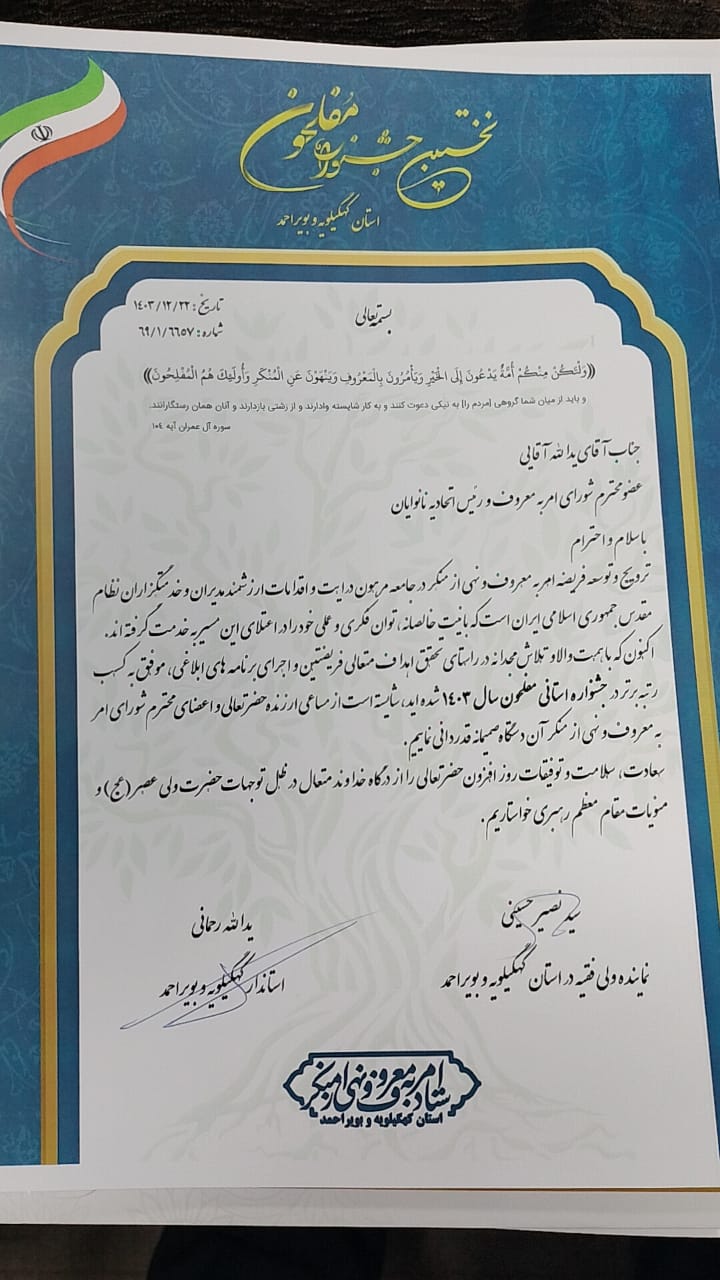 نخستین جشنواره مفلحون
استان کهگیلویه و بویراحمد
بسمه تعالی
تاریخ: ۱۴۰۳/۱۲/۲۲
شماره: ۶۹/۱/۶۶۵۷
((وَلْتَكُنْ مِنْكُمْ أُمَّةٌ يَدْعُونَ إِلَى الْخَيْرِ وَيَأْمُرُونَ بِالْمَعْرُوفِ وَيَنْهَوْنَ عَنِ الْمُنْكَرِ وَأُولَئِكَ هُمُ الْمُفْلِحُونَ))
و باید از میان شما گروهی [مردم را] به نیکی دعوت کنند و به کار شایسته وادارند و از زشتی بازدارند و آنان همان رستگارانند.
سوره آل عمران آیه ۱۰۴
جناب آقای یدالله آقایی
عضو محترم شورای امر به معروف و رئیس اتحادیه نانوایان
باسلام و احترام
ترویج و توسعه فریضه امر به معروف و نهی از منکر در جامعه مرهون درایت و اقدامات ارزشمند مدیران و خدمتگزاران نظام
مقدس جمهوری اسلامی ایران است که با نیت خالصانه، توان فکری و عملی خود را در اعتلای این مسیر به خدمت گرفته اند.
اکنون که با همت والا و تلاش مجدانه در راستای تحقق اهداف متعالی فریضتین و اجرای برنامه های ابلاغی، موفق به کسب
رتبه برتر در جشنواره استانی مفلحون سال ۱۴۰۳ شده اید، شایسته است از مساعی ارزنده حضرتعالی و اعضای محترم شورای امر
به معروف و نهی از منکر آن دستگاه صمیمانه قدردانی نماییم.
سعادت، سلامت و توفیقات روز افزون حضرتعالی را از درگاه خداوند متعال در ظل توجهات حضرت ولی عصر (عج) و
منویات مقام معظم رهبری خواستاریم.
سید نصیر حسینی
نماینده ولی فقیه در استان کهگیلویه و بویراحمد
یدالله رحمانی
استاندار کهگیلویه و بویراحمد
ستاد امر به معروف و نهی از منکر
استان کهگیلویه و بویراحمد